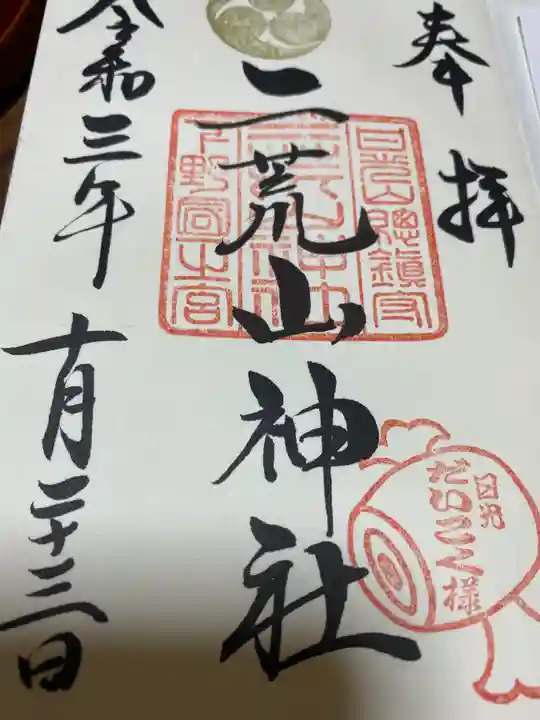 奉拝
二荒山神社
日光山総鎮守
下野國一宮
日光
だいこく様
令和三年十月二十三日